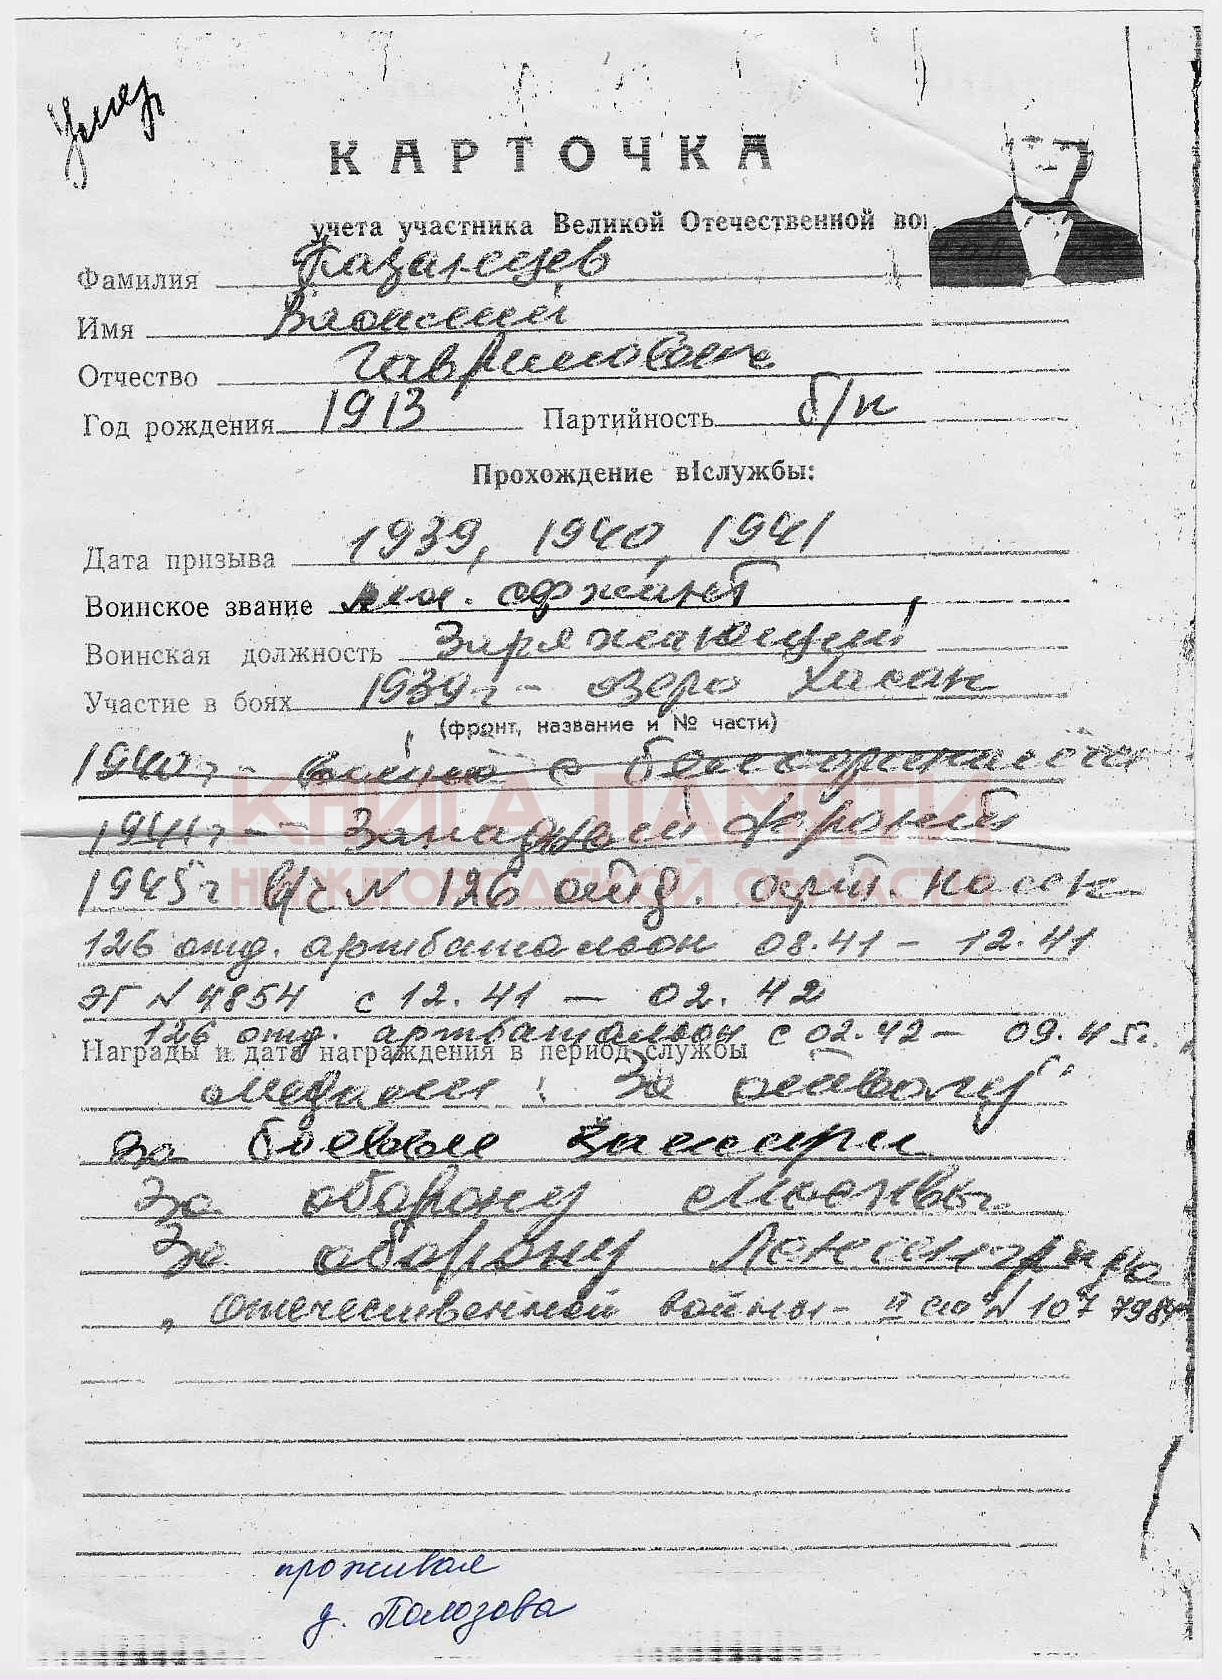 Умер
КАРТОЧКА
учета участника Великой Отечественной вой
Фамилия Казанцев
Имя Василий
Отчество Гаврилович
Год рождения 1913 Партийность б/п
Прохождение в|службы:
Дата призыва 1939, 1940, 1941
Воинское звание мл. сержант
Воинская должность Заряжающий
Участие в боях 1939г - озеро Хасан
(фронт, название и № части)
1940г - война с белофинами
1941г -- Западный фронт
КНИГА ПАМЯТИ
1945г в/ч N 126 отд. арт.
НИЖЕГОРОДСКОЙ ОБЛАСТИ
126 отд. артбатальон 08.41 - 12.41
ЭГ N 4854 с 12.41 - 02.42
126 отд. артбатальон с 02.42 - 09.45г.
Награды и дата награждения в период службы
медали: За отвагу
За боевые заслуги
За оборону Москвы
За оборону Ленинграда
" Отечественной войны - II ст N 107
проживал
д. Полозова